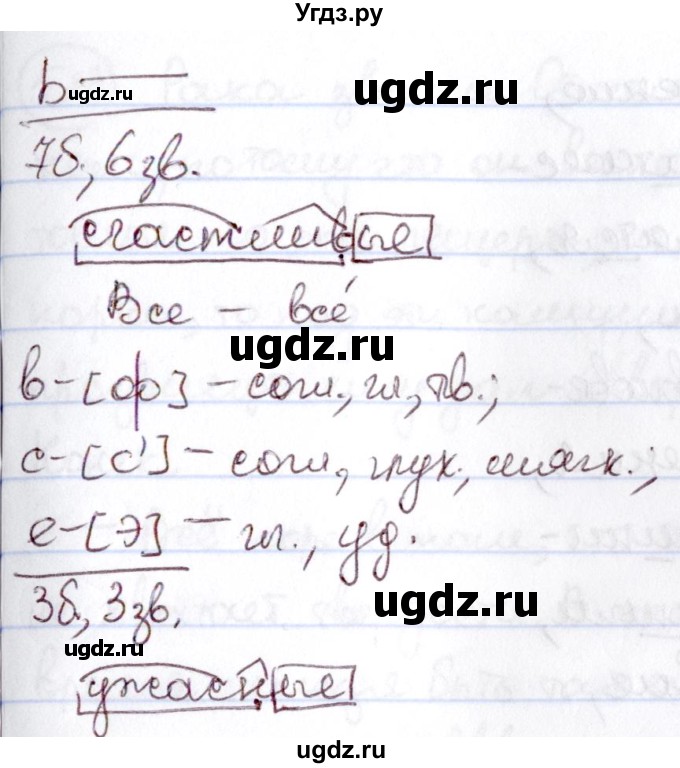 Угдз.ру
ь
ugdz.ru
7б, 6 зв.
счастливые
ugdz.ru
Все – всё
ugdz.ru
в-[ф] – согл., гл., тв.;
с-[с'] – согл., глух., мягк.;
е-[э] – гл., уд.
ugdz.ru
3б, 3 зв.
ugdz.ru
ужасные
ugdz.ru